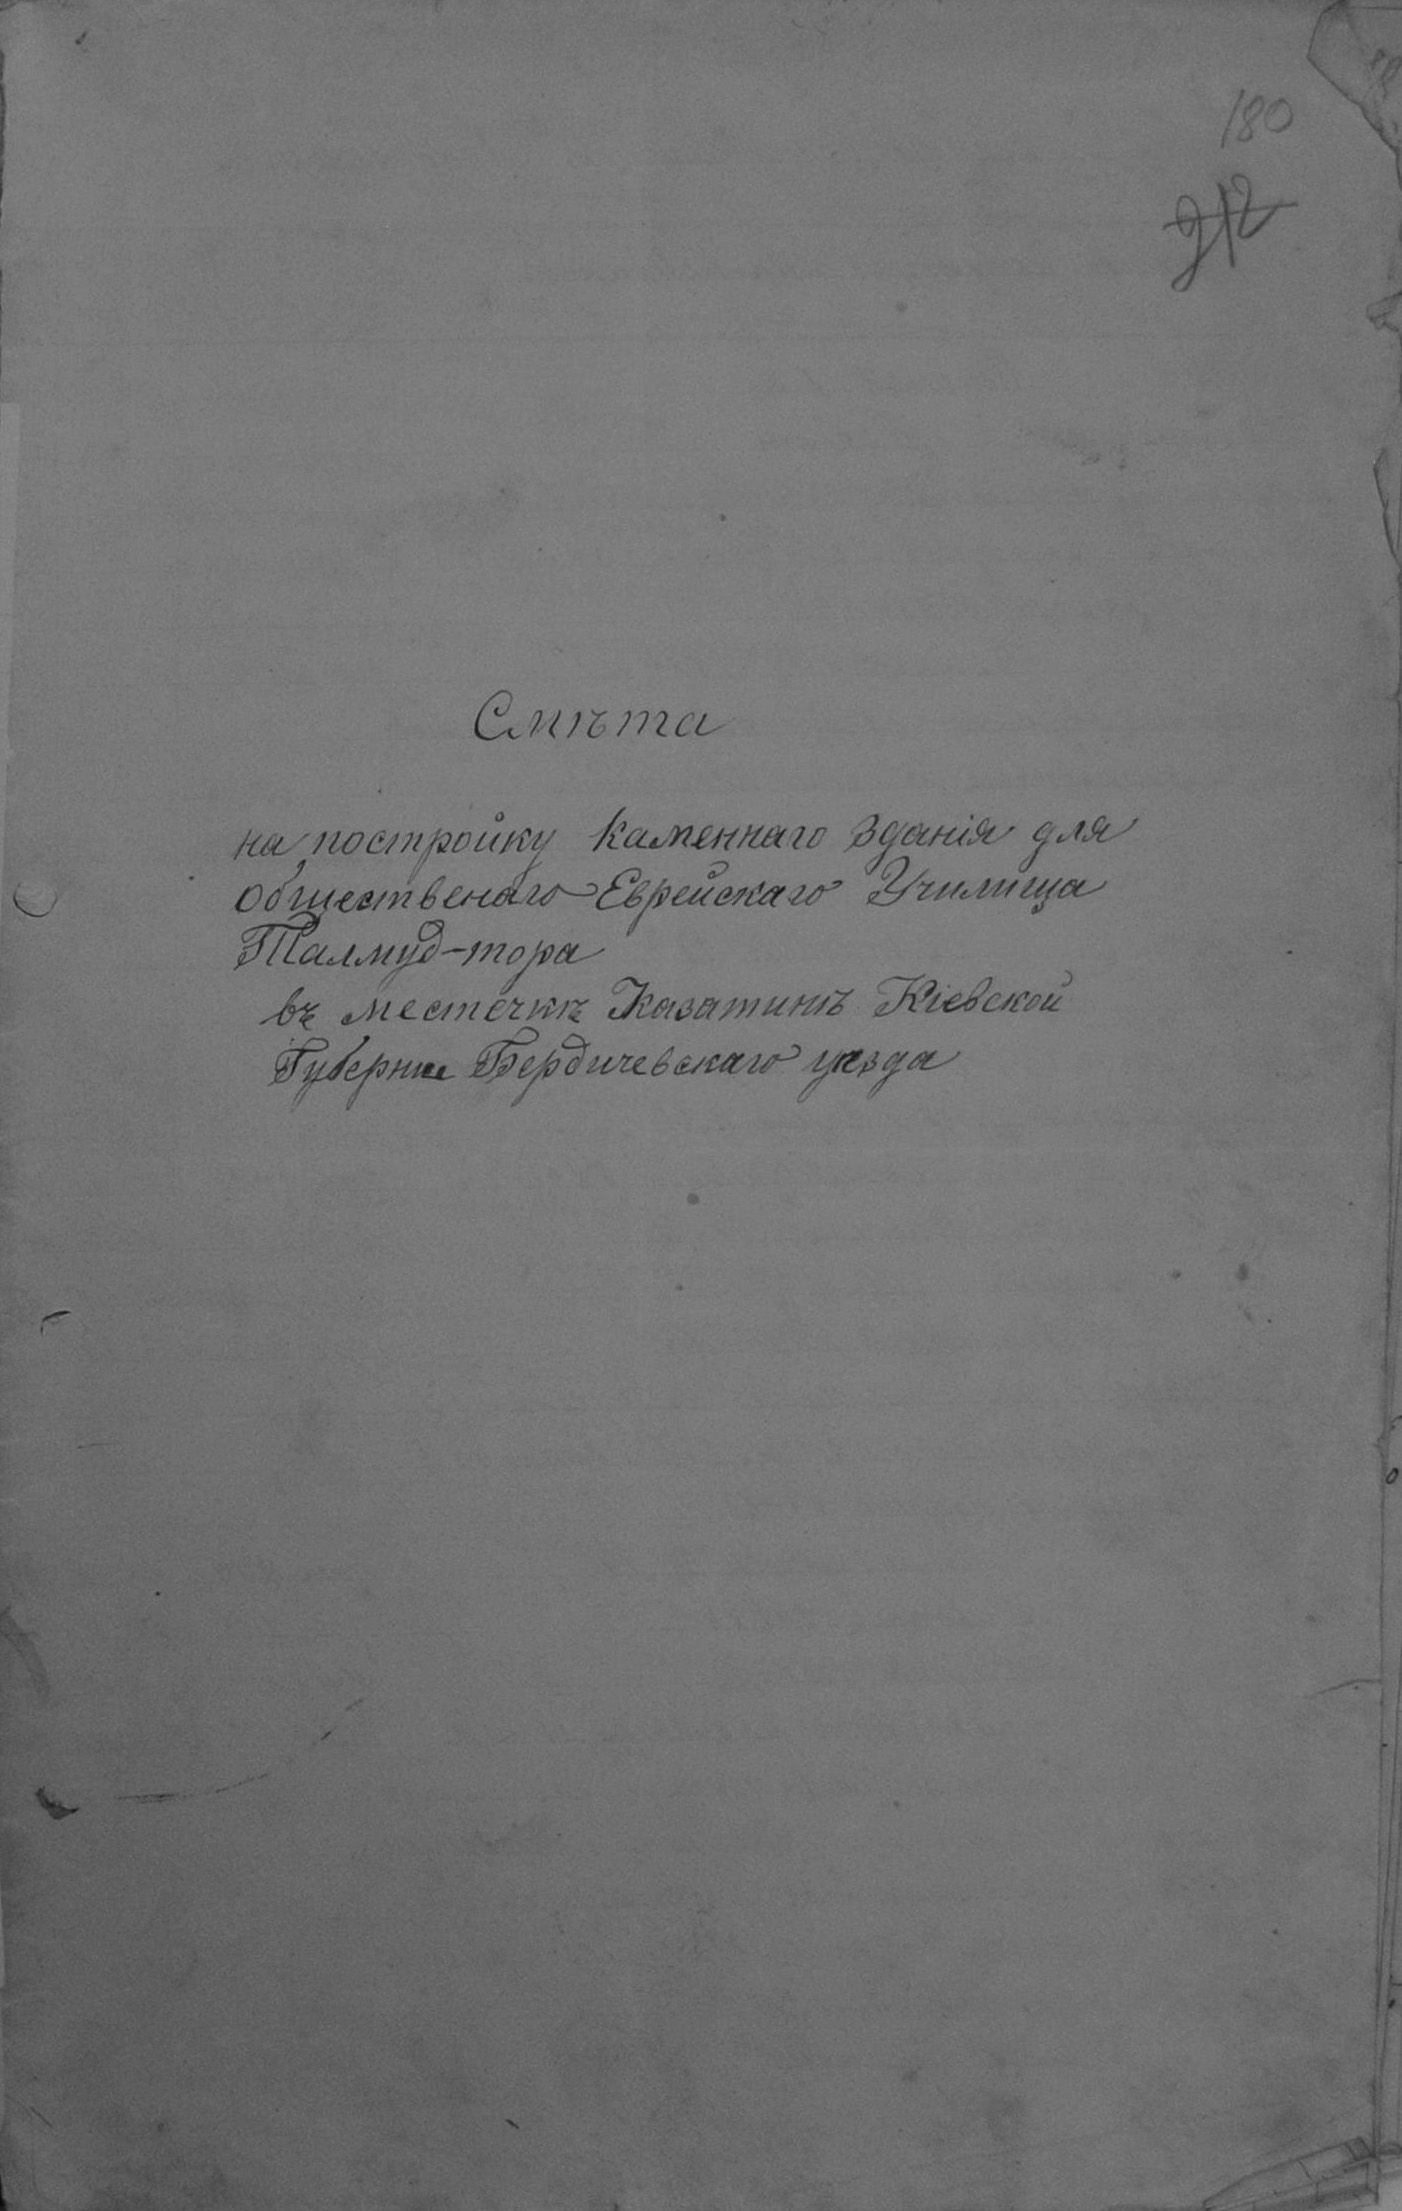 180
212
Смѣта
на постройку каменнаго зданія для
общественаго Еврейскаго Училища
Талмуд-тора
въ местечкѣ Казатинѣ Кіевской
Губернии Бердичевскаго уезда